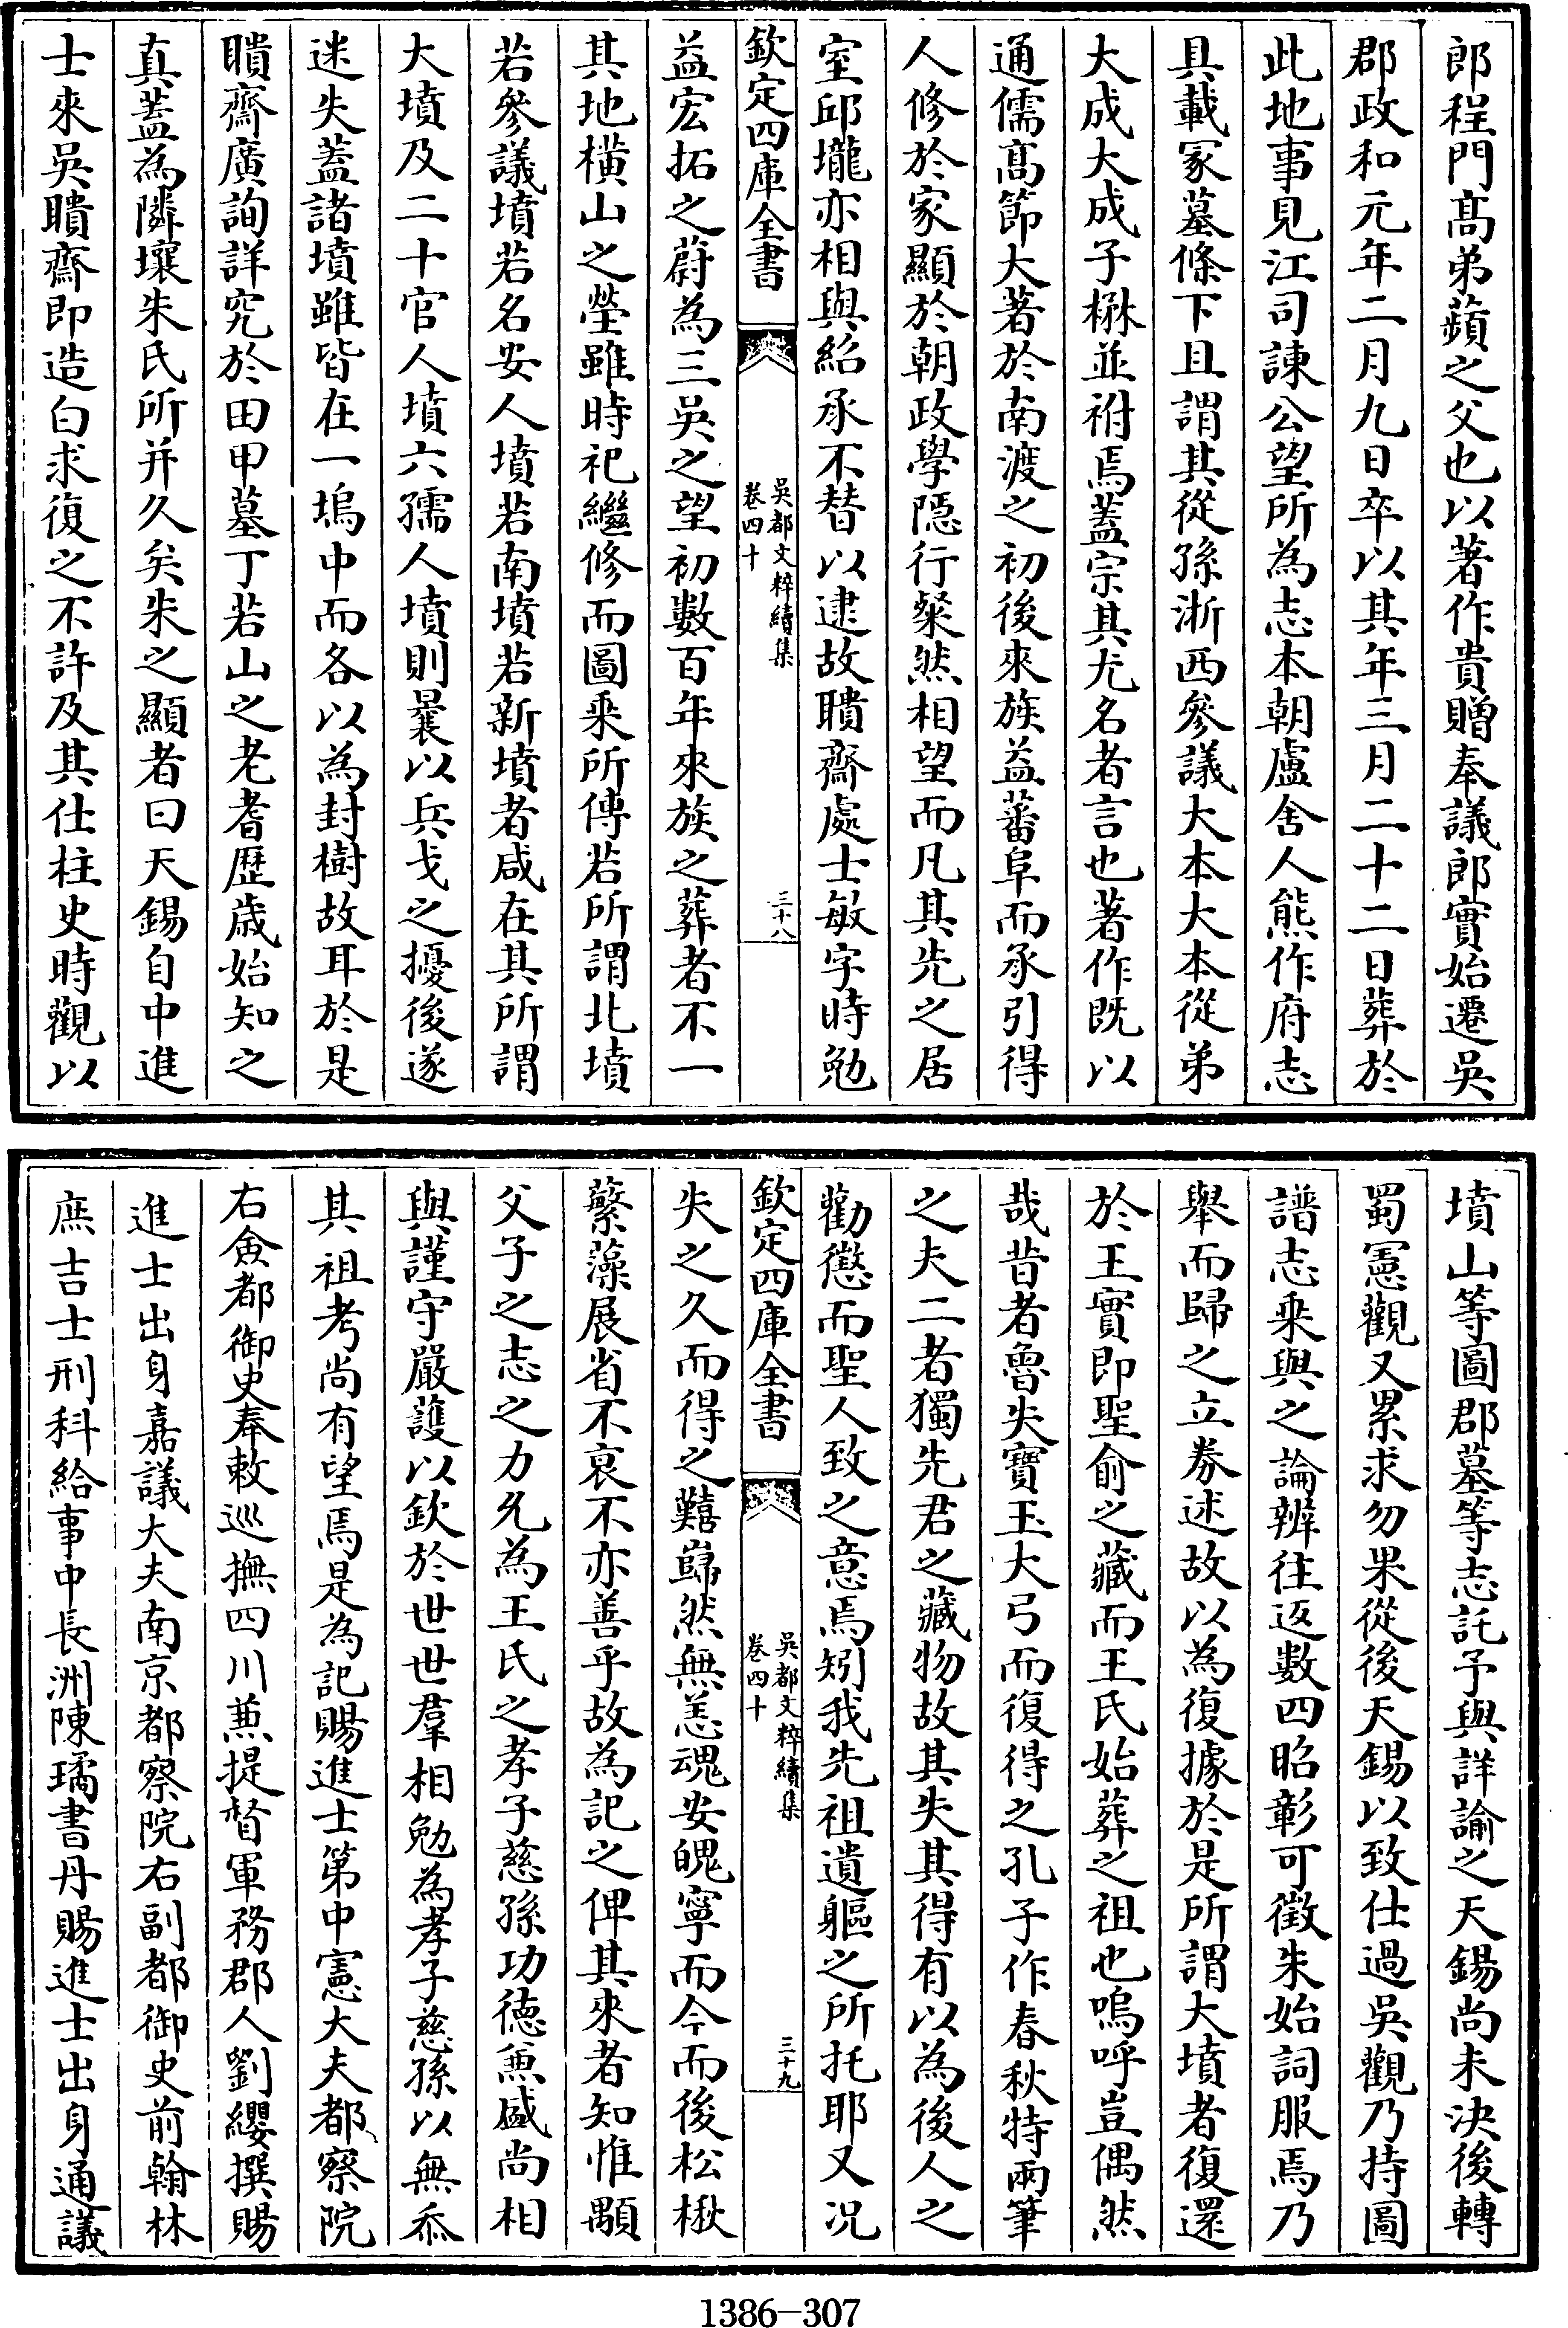 郎程門髙弟蘋之父也以著作貴贈奉議郎實始遷吳
郡政和元年二月九日卒以其年三月二十二日葬於
此地事見江司諫公望所為志本朝盧舍人熊作府志
具載冢墓條下且謂其從孫浙西參議大本大本從弟
大成大成子楙並祔焉蓋宗其尤名者言也著作既以
通儒髙節大著於南渡之初後來族益蕃阜而承引得
人修於家顯於朝政學隠行粲然相望而凡其先之居
室邱壠亦相與紹承不替以逮故聵齋處士敏字時勉
欽定四庫全書
吳都文粹續集
卷四十
三十八
益宏拓之蔚為三吳之望初數百年來族之葬者不一
其地横山之塋雖時祀繼修而圖乘所傳若所謂北墳
若參議墳若名安人墳若南墳若新墳者咸在其所謂
大墳及二十官人墳六孺人墳則曩以兵戈之擾後遂
迷失蓋諸墳雖皆在一塢中而各以為封樹故耳於是
聵齋廣詢詳究於田甲墓丁若山之老耆歴歲始知之
真蓋為隣壤朱氏所并久矣朱之顯者曰天錫自中進
士來吳聵齋即造白求復之不許及其仕柱史時觀以
墳山等圖郡墓等志託予與詳諭之天錫尚未決後轉
蜀憲觀又累求勿果從後天錫以致仕過吳觀乃持圖
譜志乘與之論辨往返數四昭彰可徵朱始詞服焉乃
舉而歸之立劵述故以為復據於是所謂大墳者復還
於王實即聖俞之藏而王氏始葬之祖也嗚呼豈偶然
哉昔者魯失寶玉大弓而復得之孔子作春秋特兩筆
之夫二者獨先君之藏物故其失其得有以為後人之
勸懲而聖人致之意焉矧我先祖遺軀之所托耶又况
欽定四庫全書
吳都文粹續集
卷四十
三十九
失之久而得之難巋然無恙魂安魄寧而今而後松楸
蘩藻展省不衰不亦善乎故為記之俾其來者知惟顒
父子之志之力允為王氏之孝子慈孫功徳兼盛尚相
與謹守嚴䕶以欽於世世羣相勉為孝子慈孫以無忝
其祖考尚有望焉是為記賜進士第中憲大夫都察院
右僉都御史奉敕巡撫四川兼提督軍務郡人劉纓撰賜
進士出身嘉議大夫南京都察院右副都御史前翰林
庶吉士刑科給事中長洲陳璚書丹賜進士出身通議
1386－307